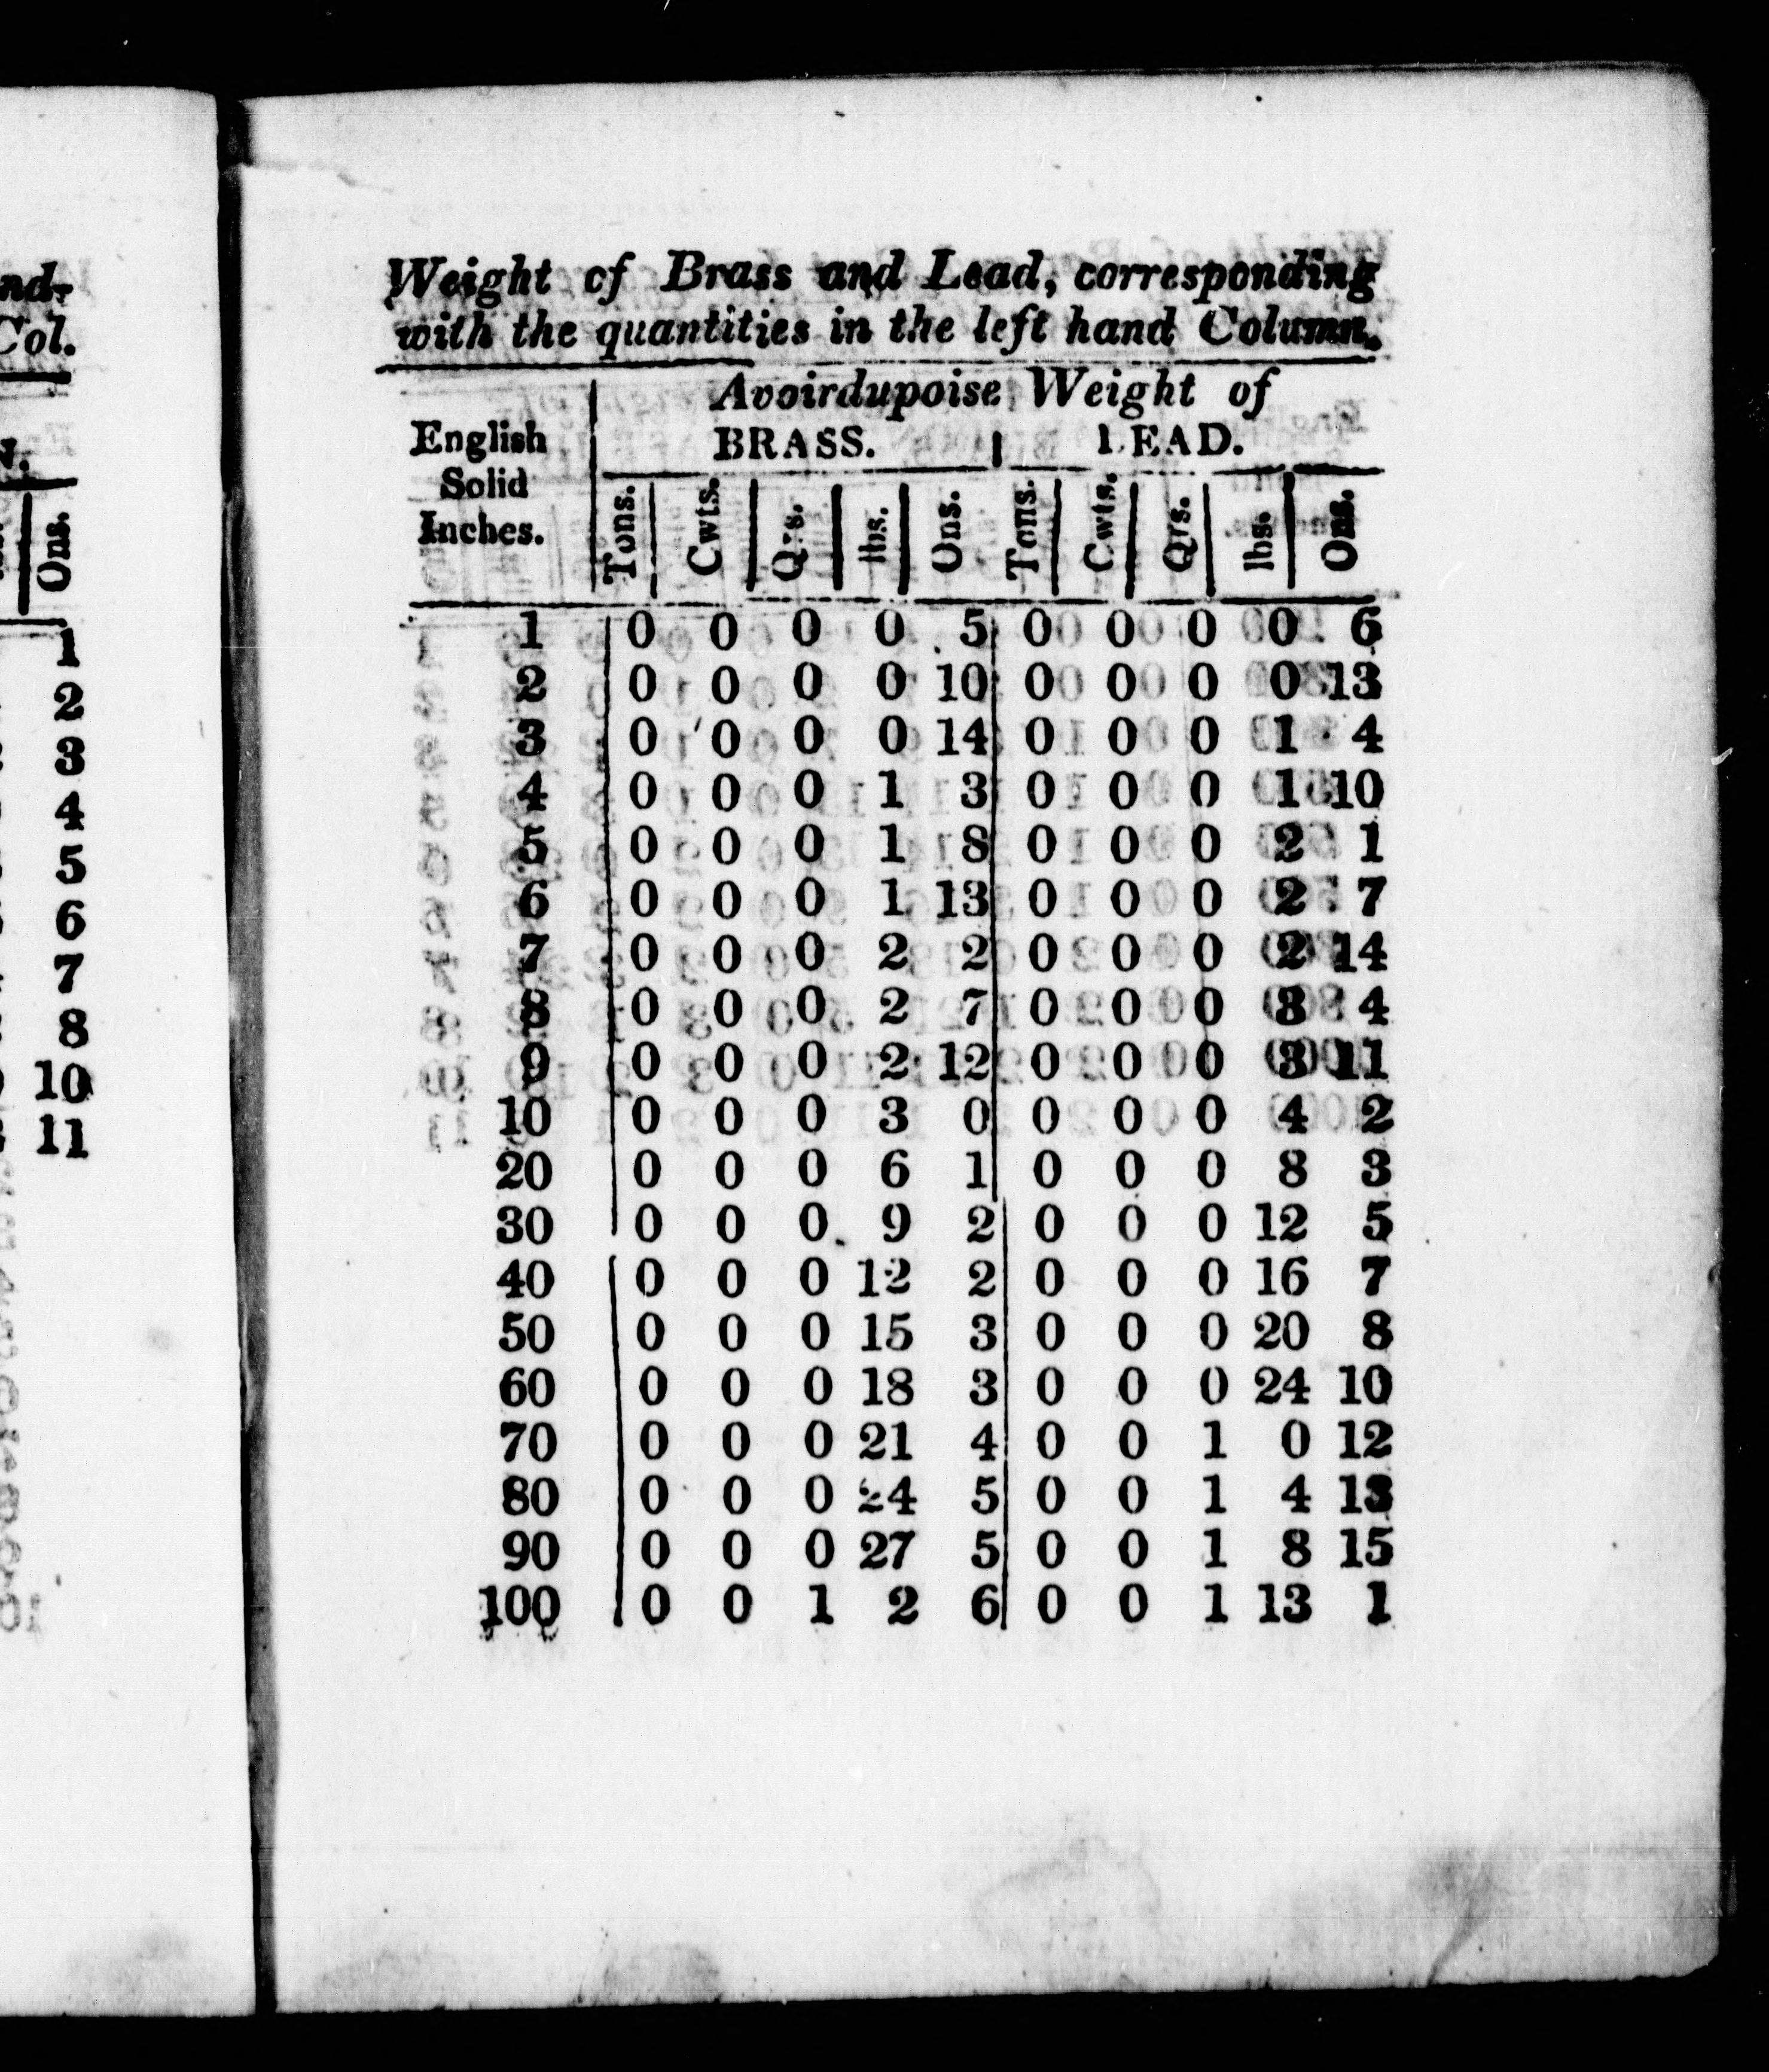 nd-
Col.
Ons.
1
2
3
4
5
6
7
8
10
11
Weight of Brass and Lead, corresponding
with the quantities in the left hand Column.
Avoirdupoise Weight of
English Solid Inches.
BRASS. LEAD.
Tons. Cwts. Qrs. lbs. Ons. Tons. Cwts. Qrs. lbs. Ons.
1 0 0 0 0 5 0 0 0 0 6
2 0 0 0 0 10 0 0 0 0 13
3 0 0 0 0 14 0 0 0 1 4
4 0 0 0 1 3 0 0 0 1 10
5 0 0 0 1 8 0 0 0 2 1
6 0 0 0 1 13 0 0 0 2 7
7 0 0 0 2 2 0 0 0 2 14
8 0 0 0 2 7 0 0 0 3 4
9 0 0 0 2 12 0 0 0 3 11
10 0 0 0 3 0 0 0 0 4 2
20 0 0 0 6 1 0 0 0 8 3
30 0 0 0 9 2 0 0 0 12 5
40 0 0 0 12 2 0 0 0 16 7
50 0 0 0 15 3 0 0 0 20 8
60 0 0 0 18 3 0 0 0 24 10
70 0 0 0 21 4 0 0 1 0 12
80 0 0 0 24 5 0 0 1 4 13
90 0 0 0 27 5 0 0 1 8 15
100 0 0 1 2 6 0 0 1 13 1